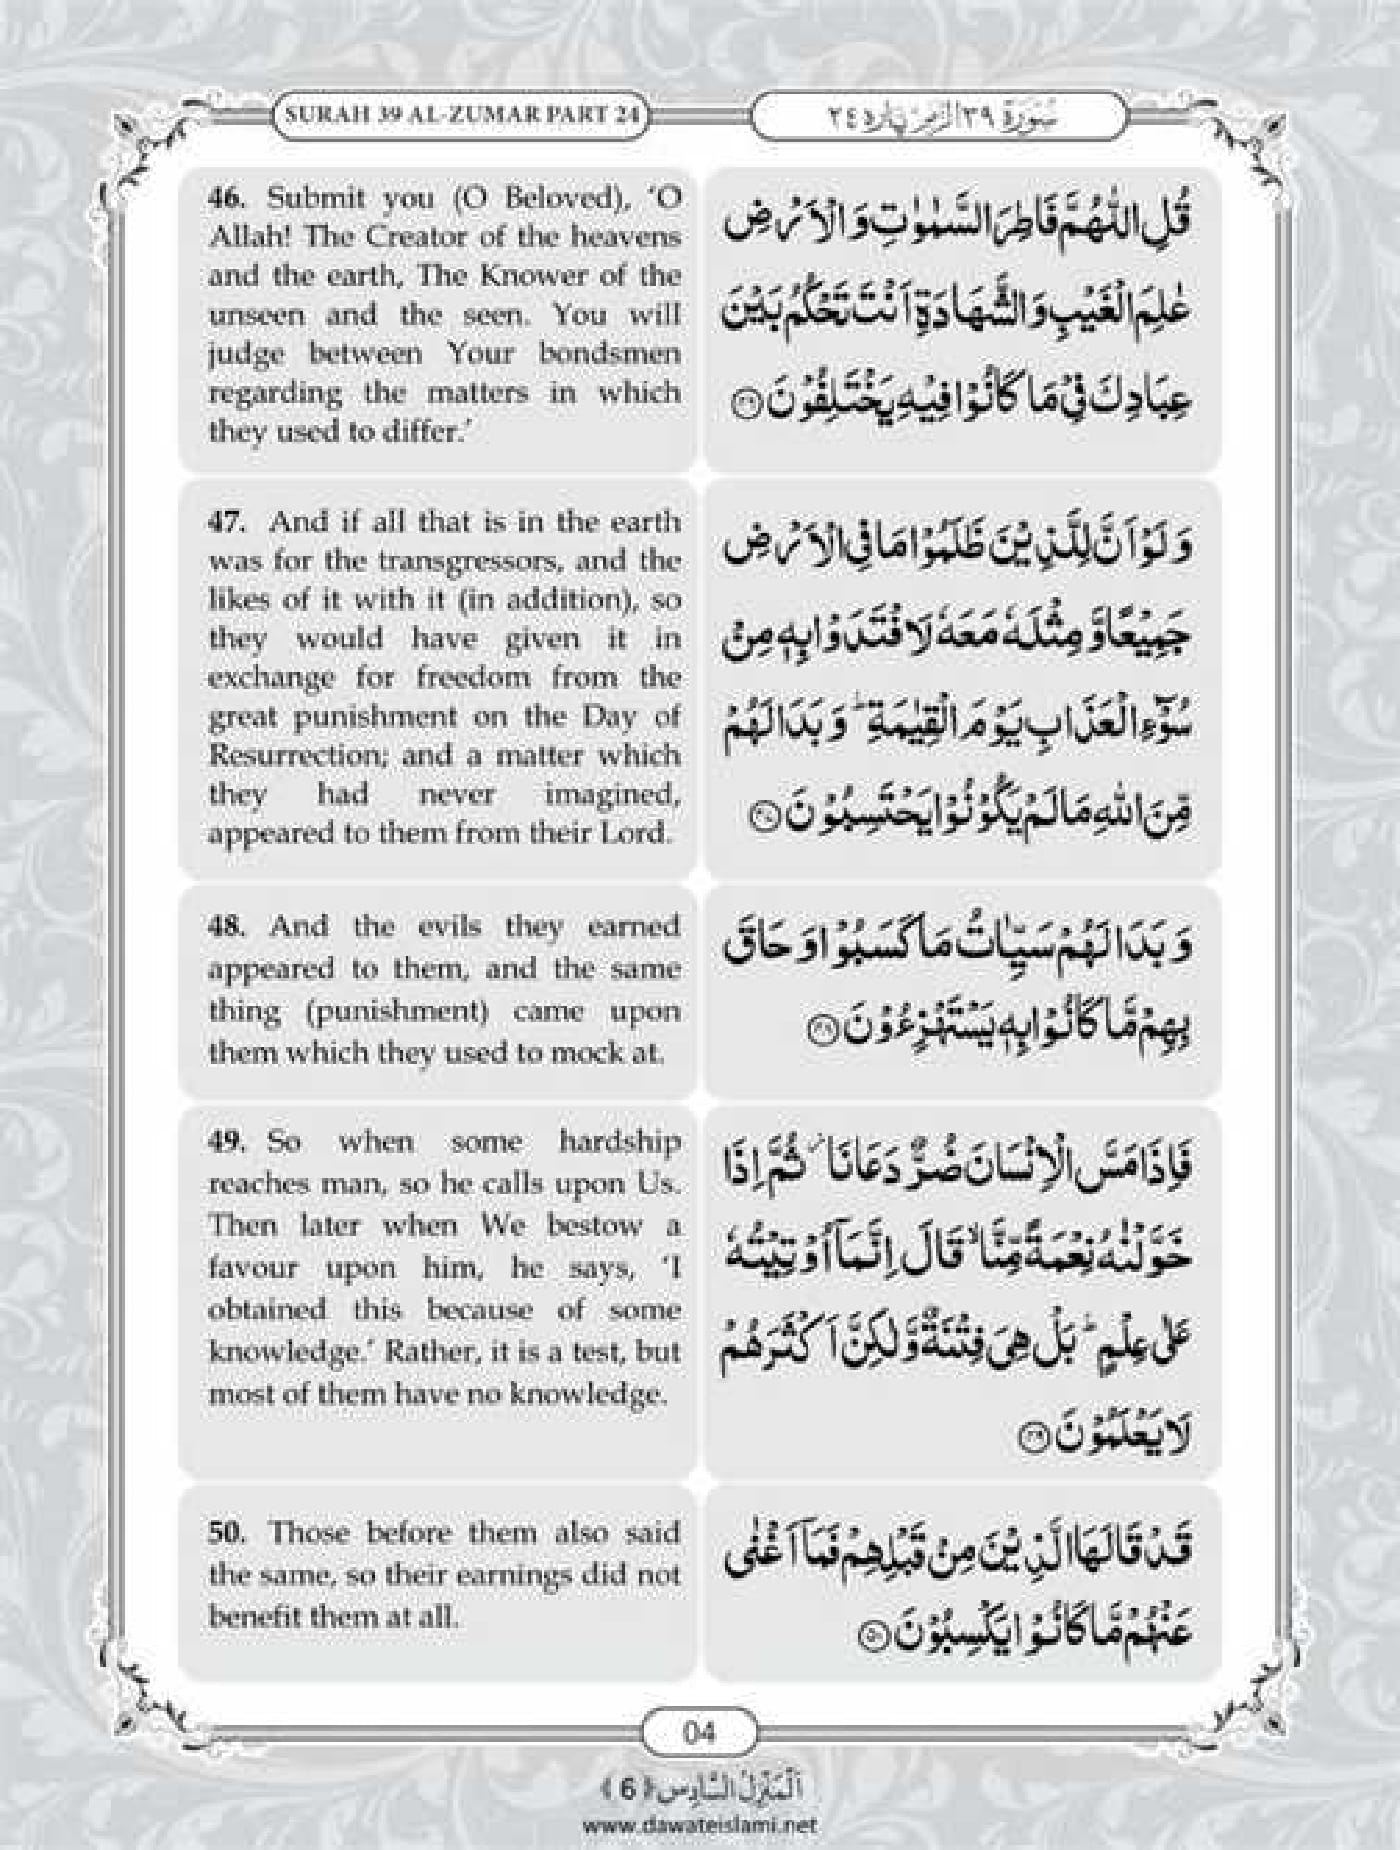 SURAH 39 AL-ZUMAR PART 24
سُوْرَة ٣٩ الزمر پاره ٢٤
46. Submit you (O Beloved), ‘O
Allah! The Creator of the heavens
and the earth, The Knower of the
unseen and the seen. You will
judge between Your bondsmen
regarding the matters in which
they used to differ.’
قُلِ اللّٰهُمَّ فَاطِرَ السَّمٰوٰتِ وَ الْاَرْضِ
عٰلِمَ الْغَیْبِ وَ الشَّهَادَةِ اَنْتَ تَحْكُمُ بَیْنَ
عِبَادِكَ فِیْ مَا كَانُوْا فِیْهِ یَخْتَلِفُوْنَ ﴿۴۶﴾
47. And if all that is in the earth
was for the transgressors, and the
likes of it with it (in addition), so
they would have given it in
exchange for freedom from the
great punishment on the Day of
Resurrection; and a matter which
they had never imagined,
appeared to them from their Lord.
وَ لَوْ اَنَّ لِلَّذِیْنَ ظَلَمُوْا مَا فِی الْاَرْضِ
جَمِیْعًا وَّ مِثْلَهٗ مَعَهٗ لَافْتَدَوْا بِهٖ مِنْ
سُوْٓءِ الْعَذَابِ یَوْمَ الْقِیٰمَةِ ؕ وَ بَدَا لَهُمْ
مِّنَ اللّٰهِ مَا لَمْ یَكُوْنُوْا یَحْتَسِبُوْنَ ﴿۴۷﴾
48. And the evils they earned
appeared to them, and the same
thing (punishment) came upon
them which they used to mock at.
وَ بَدَا لَهُمْ سَیِّاٰتُ مَا كَسَبُوْا وَ حَاقَ
بِهِمْ مَّا كَانُوْا بِهٖ یَسْتَهْزِءُوْنَ ﴿۴۸﴾
49. So when some hardship
reaches man, so he calls upon Us.
Then later when We bestow a
favour upon him, he says, ‘I
obtained this because of some
knowledge.’ Rather, it is a test, but
most of them have no knowledge.
فَاِذَا مَسَّ الْاِنْسَانَ ضُرٌّ دَعَانَا ؗ ثُمَّ اِذَا
خَوَّلْنٰهُ نِعْمَةً مِّنَّا ۙ قَالَ اِنَّمَاۤ اُوْتِیْتُهٗ
عَلٰی عِلْمٍ ؕ بَلْ هِیَ فِتْنَةٌ وَّ لٰكِنَّ اَكْثَرَهُمْ
لَا یَعْلَمُوْنَ ﴿۴۹﴾
50. Those before them also said
the same, so their earnings did not
benefit them at all.
قَدْ قَالَهَا الَّذِیْنَ مِنْ قَبْلِهِمْ فَمَاۤ اَغْنٰی
عَنْهُمْ مَّا كَانُوْا یَكْسِبُوْنَ ﴿۵۰﴾
04
اَلْمَنْزِلُ السَّادِس ﴿6﴾
www.dawateislami.net